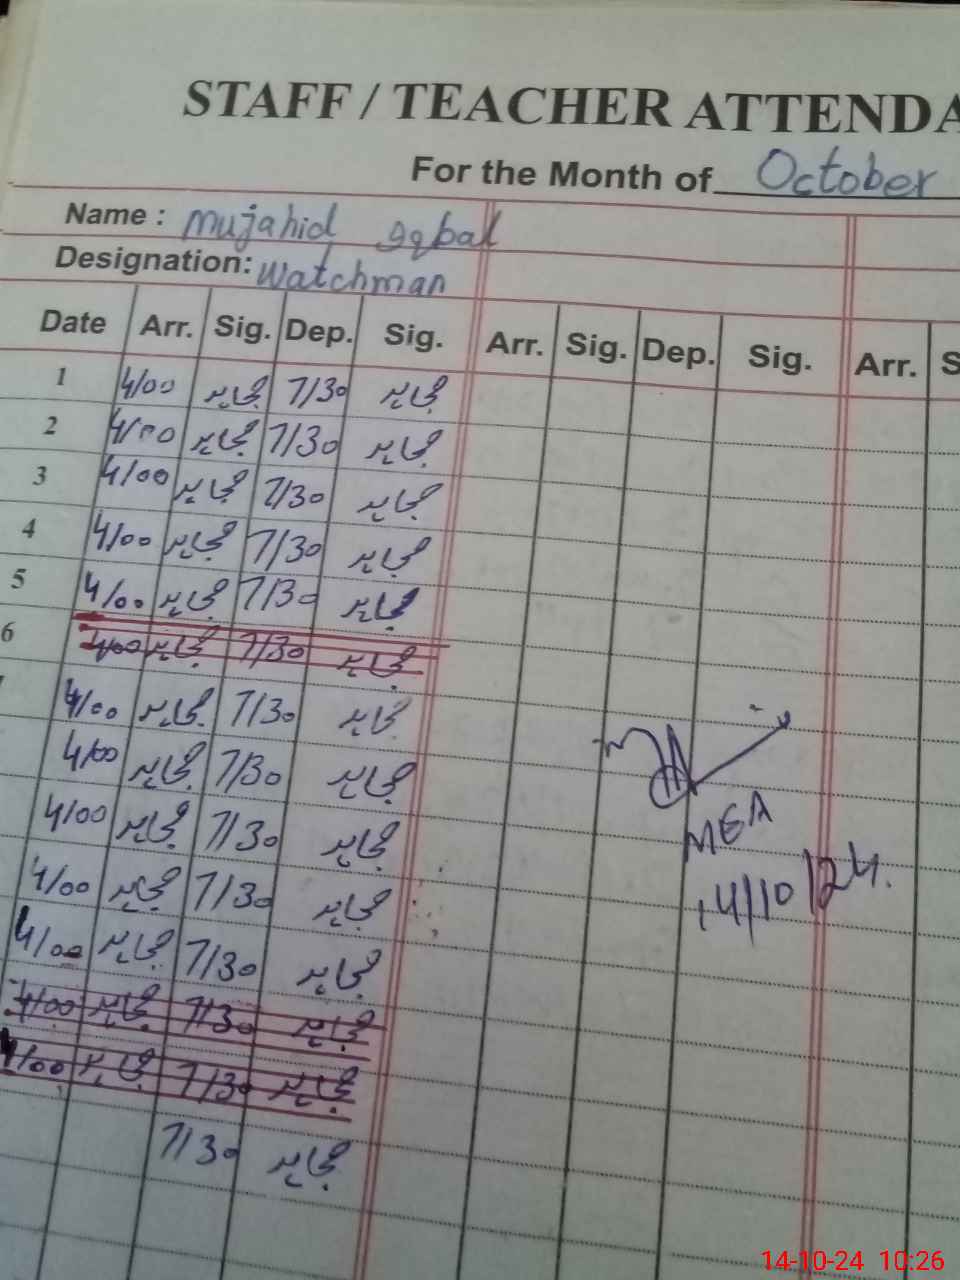 STAFF / TEACHER ATTENDA
For the Month of October
Name : Mujahid Iqbal
Designation: Watchman
Date Arr. Sig. Dep. Sig. Arr. Sig. Dep. Sig. Arr. S
1 4/00 مجاہد 7/30 مجاہد
2 4/00 مجاہد 7/30 مجاہد
3 4/00 مجاہد 7/30 مجاہد
4 4/00 مجاہد 7/30 مجاہد
5 4/00 مجاہد 7/30 مجاہد
6 4/00 مجاہد 7/30 مجاہد
4/00 مجاہد 7/30 مجاہد
4/00 مجاہد 7/30 مجاہد
4/00 مجاہد 7/30 مجاہد
4/00 مجاہد 7/30 مجاہد
4/00 مجاہد 7/30 مجاہد
4/00 مجاہد 7/30 مجاہد
4/00 مجاہد 7/30 مجاہد
7/30 مجاہد
MEA
14/10/24.
14-10-24 10:26